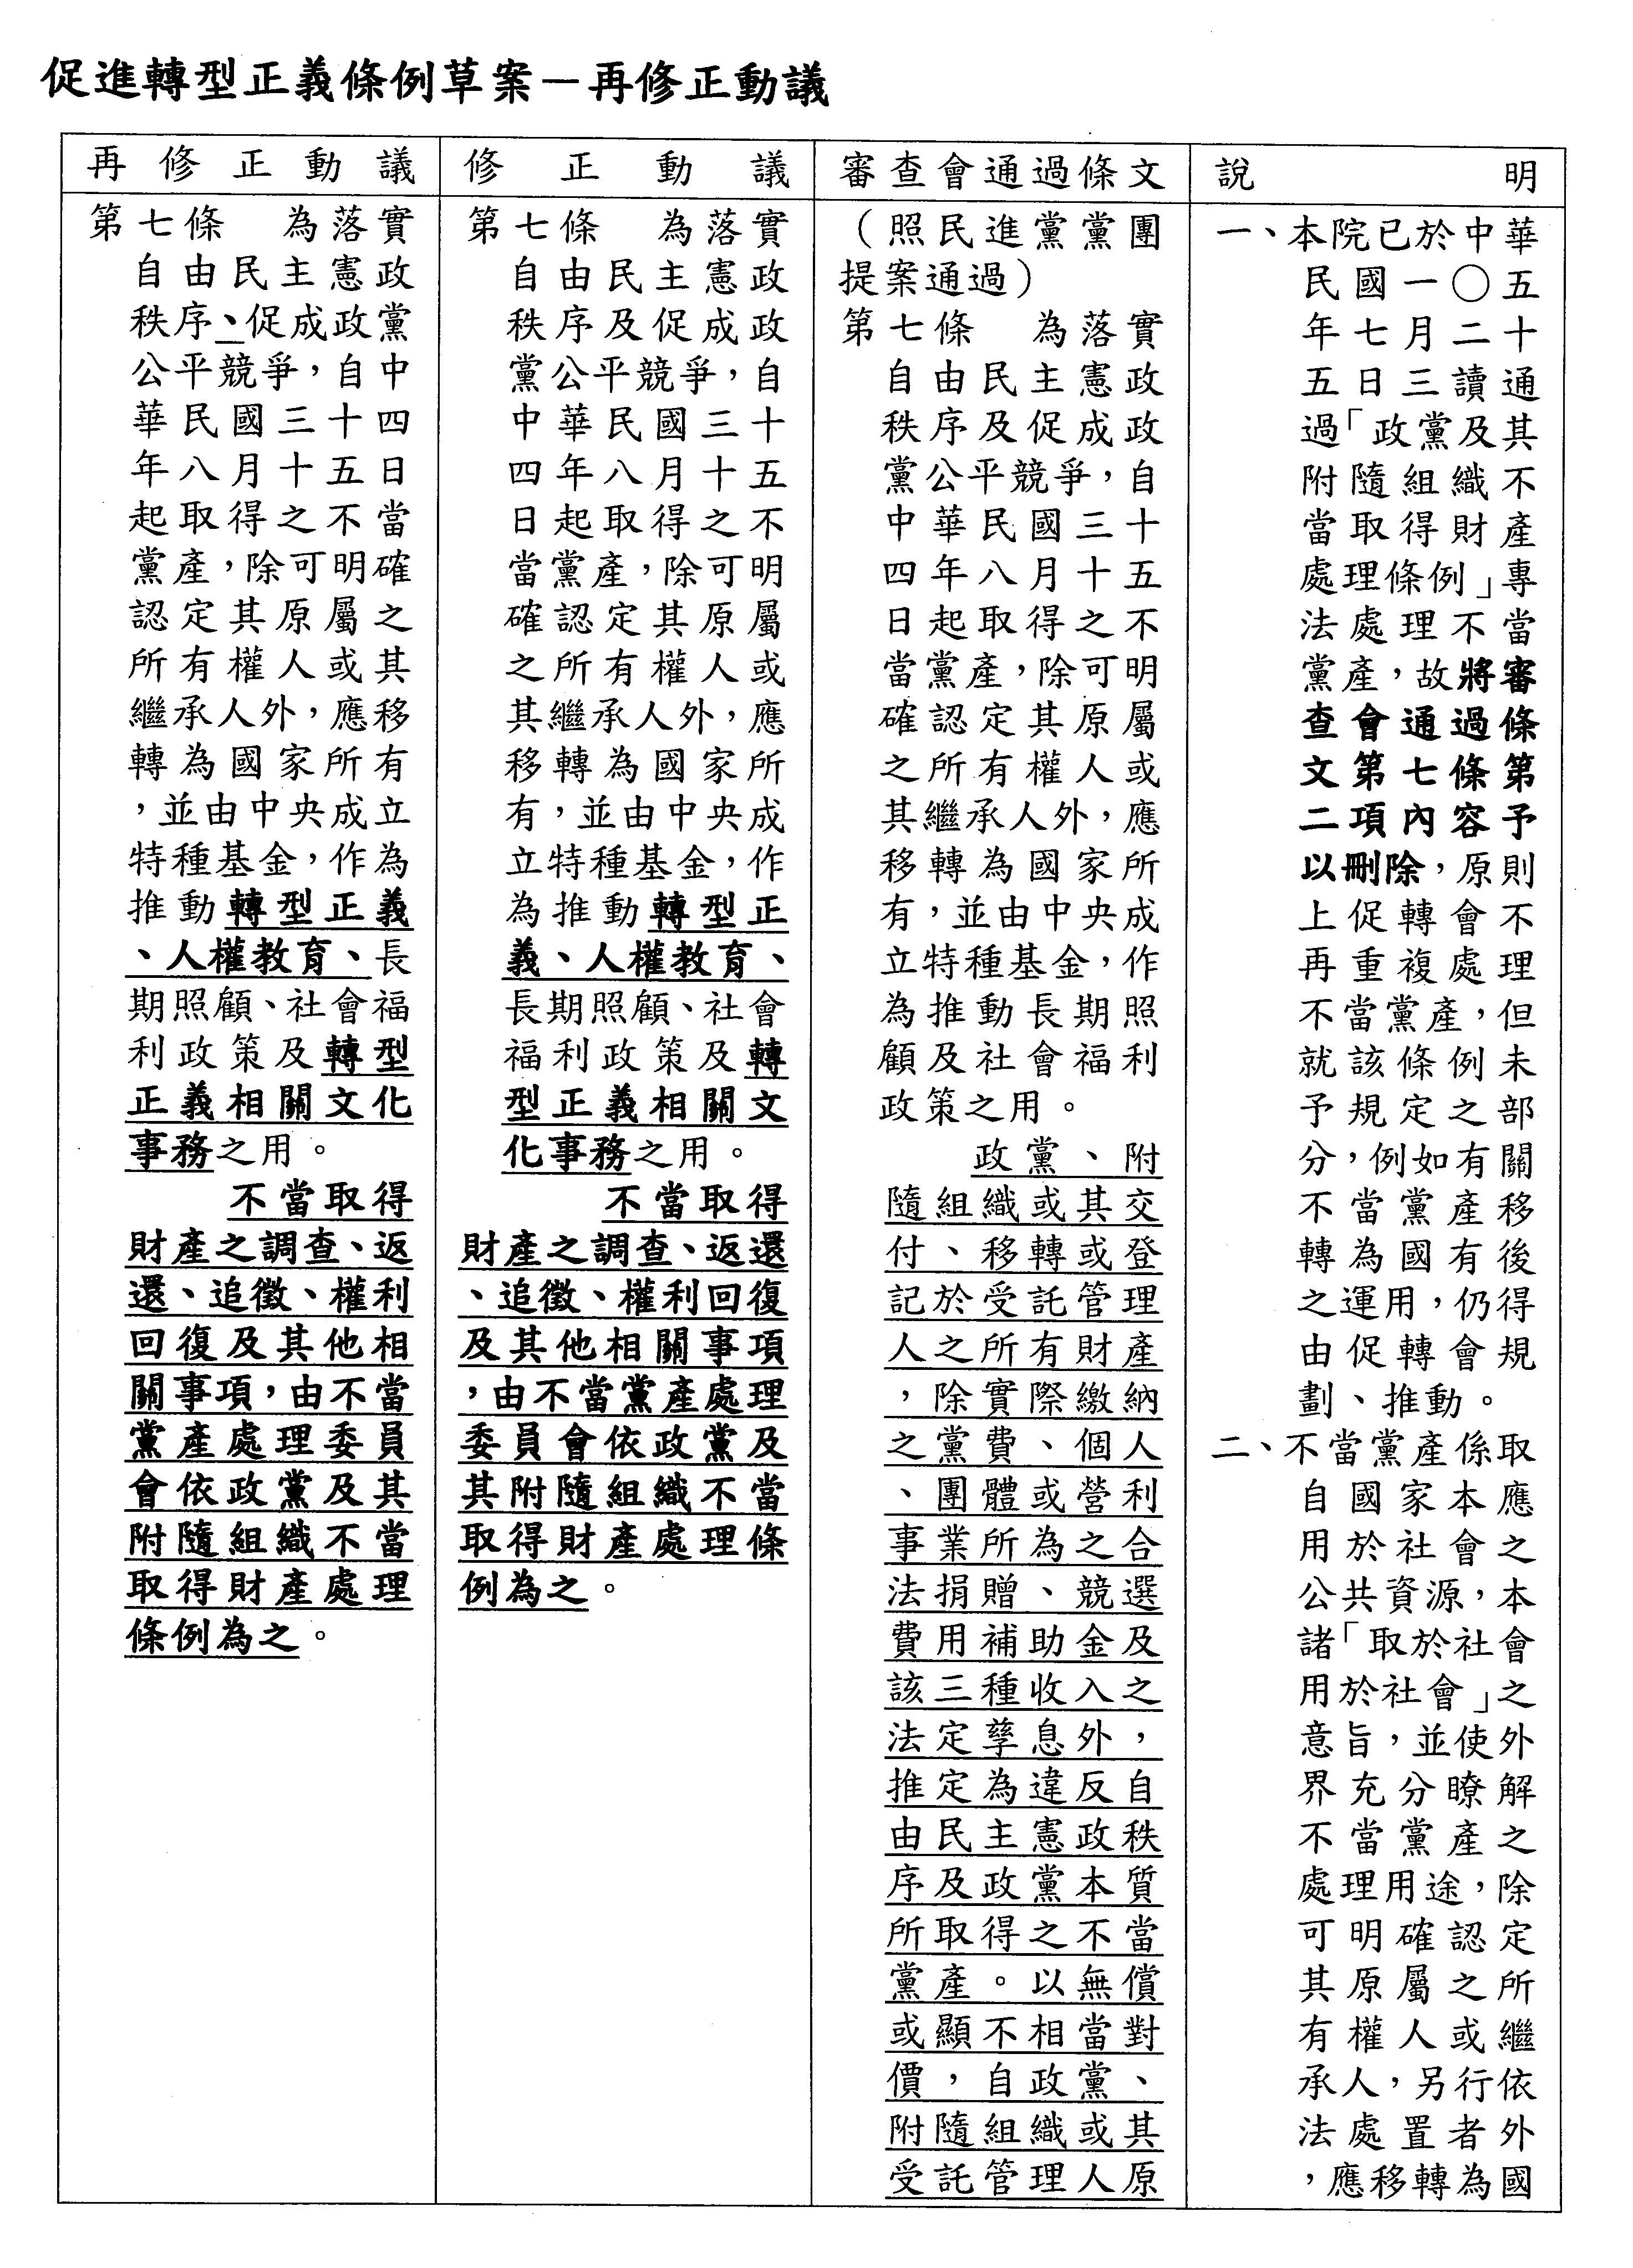 促進轉型正義條例草案－再修正動議
再修正動議
第七條　為落實
自由民主憲政
秩序、促成政黨
公平競爭，自中
華民國三十四
年八月十五日
起取得之不當
黨產，除可明確
認定其原屬之
所有權人或其
繼承人外，應移
轉為國家所有
，並由中央成立
特種基金，作為
推動轉型正義
、人權教育、長
期照顧、社會福
利政策及轉型
正義相關文化
事務之用。
不當取得
財產之調查、返
還、追徵、權利
回復及其他相
關事項，由不當
黨產處理委員
會依政黨及其
附隨組織不當
取得財產處理
條例為之。
修正動議
第七條　為落實
自由民主憲政
秩序及促成政
黨公平競爭，自
中華民國三十
四年八月十五
日起取得之不
當黨產，除可明
確認定其原屬
之所有權人或
其繼承人外，應
移轉為國家所
有，並由中央成
立特種基金，作
為推動轉型正
義、人權教育、
長期照顧、社會
福利政策及轉
型正義相關文
化事務之用。
不當取得
財產之調查、返還
、追徵、權利回復
及其他相關事項
，由不當黨產處理
委員會依政黨及
其附隨組織不當
取得財產處理條
例為之。
審查會通過條文
（照民進黨黨團
提案通過）
第七條　為落實
自由民主憲政
秩序及促成政
黨公平競爭，自
中華民國三十
四年八月十五
日起取得之不
當黨產，除可明
確認定其原屬
之所有權人或
其繼承人外，應
移轉為國家所
有，並由中央成
立特種基金，作
為推動長期照
顧及社會福利
政策之用。
政黨、附
隨組織或其交
付、移轉或登
記於受託管理
人之所有財產
，除實際繳納
之黨費、個人
、團體或營利
事業所為之合
法捐贈、競選
費用補助金及
該三種收入之
法定孳息外，
推定為違反自
由民主憲政秩
序及政黨本質
所取得之不當
黨產。以無償
或顯不相當對
價，自政黨、
附隨組織或其
受託管理人原
說明
一、本院已於中華
民國一〇五
年七月二十
五日三讀通
過「政黨及其
附隨組織不
當取得財產
處理條例」專
法處理不當
黨產，故將審
查會通過條
文第七條第
二項內容予
以刪除，原則
上促轉會不
再重複處理
不當黨產，但
就該條例未
予規定之部
分，例如有關
不當黨產移
轉為國有後
之運用，仍得
由促轉會規
劃、推動。
二、不當黨產係取
自國家本應
用於社會之
公共資源，本
諸「取於社會
用於社會」之
意旨，並使外
界充分瞭解
不當黨產之
處理用途，除
可明確認定
其原屬之所
有權人或繼
承人，另行依
法處置者外
，應移轉為國